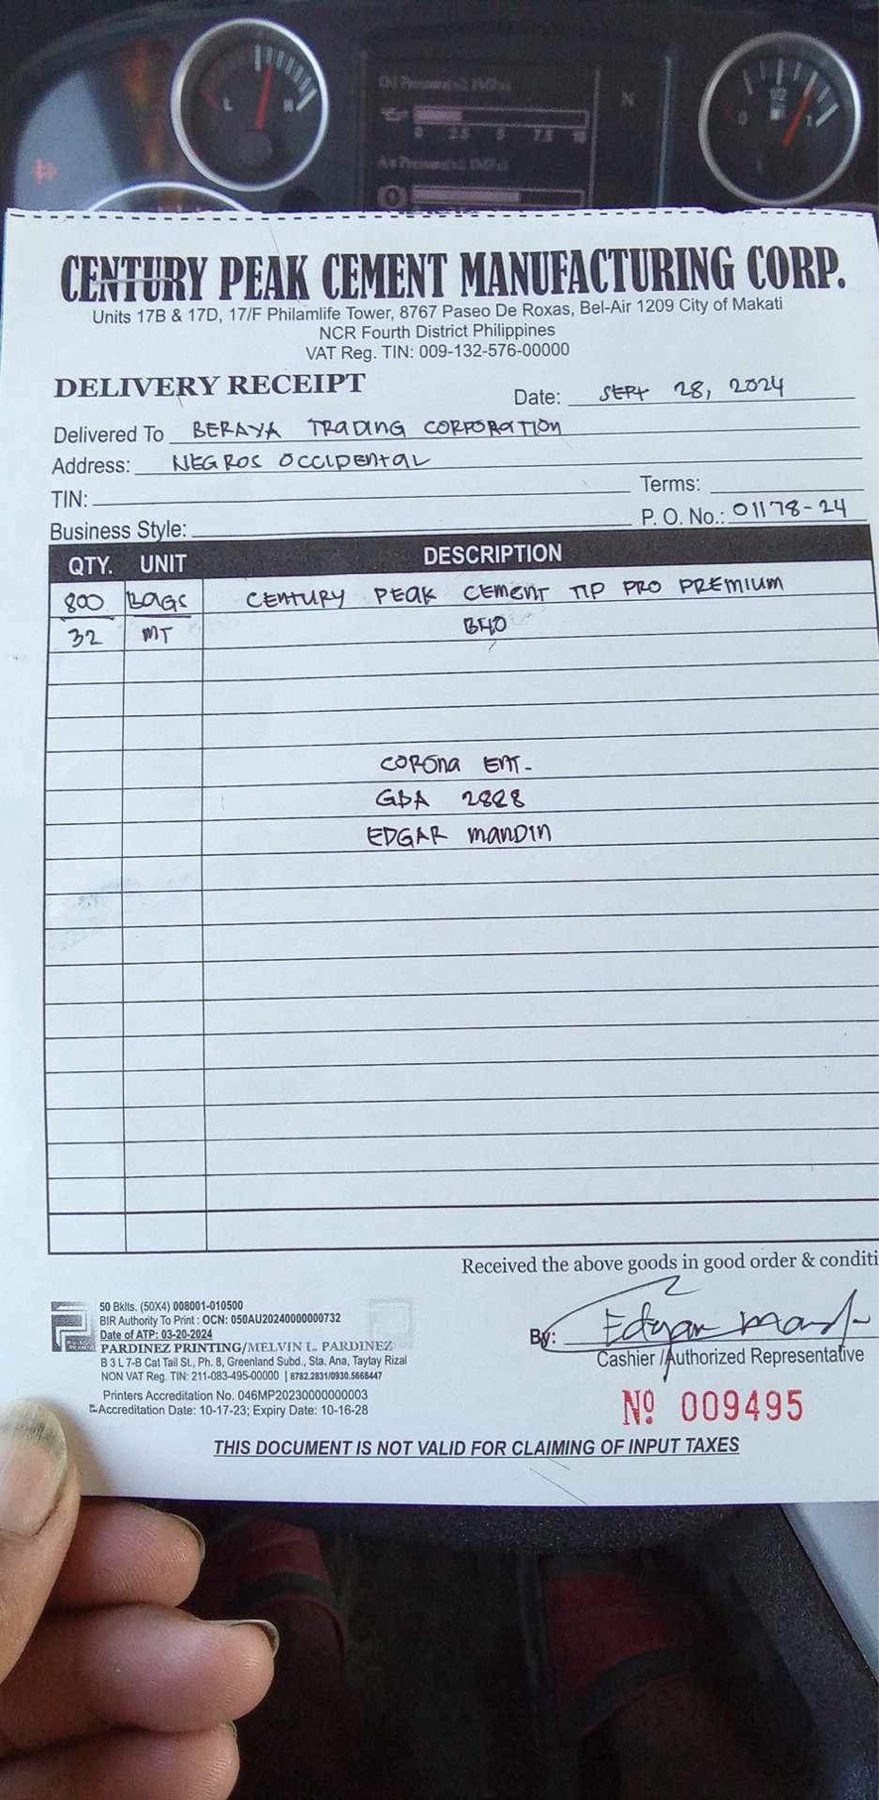 CENTURY PEAK CEMENT MANUFACTURING CORP.
Units 17B & 17D, 17/F Philamlife Tower, 8767 Paseo De Roxas, Bel-Air 1209 City of Makati
NCR Fourth District Philippines
VAT Reg. TIN: 009-132-576-00000
DELIVERY RECEIPT
Date: SEPT 28, 2024
Delivered To BERAYA TRADING CORPORATION
Address: NEGROS OCCIDENTAL
TIN:
Terms:
Business Style:
P. O. No.: 01178-24
QTY. UNIT DESCRIPTION
800 BAGS CENTURY PEAK CEMENT TIP PRO PREMIUM
32 MT
CORONA ENT.
GDA 2828
EDGAR MANDIN
Received the above goods in good order & conditi
50 Bklts. (50X4) 008001-010500
BIR Authority To Print : OCN: 050AU20240000000732
Date of ATP: 03-20-2024
PARDINEZ PRINTING/MELVIN L. PARDINEZ
B 3 L 7-B Cat Tail St., Ph. 8, Greenland Subd., Sta. Ana, Taytay Rizal
NON VAT Reg. TIN: 211-083-495-00000 | 8782.2831/0930.5668447
Printers Accreditation No. 046MP20230000000003
Accreditation Date: 10-17-23; Expiry Date: 10-16-28
By: Edgar
Cashier /Authorized Representative
Nº 009495
THIS DOCUMENT IS NOT VALID FOR CLAIMING OF INPUT TAXES